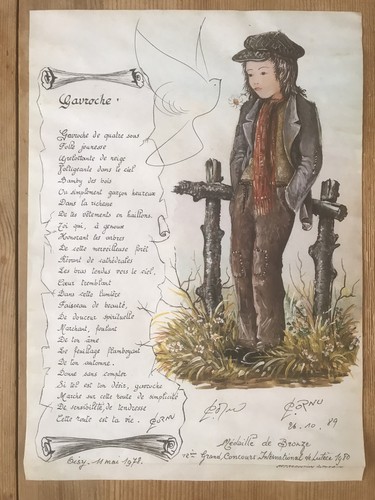 Gavroche.
Gavroche de quatre sous
Folle jeunesse
Grelottante de neige
Voltigeante dans le ciel
Bamby des bois
Ou simplement garçon heureux
Dans la richesse
De tes vêtements en haillons.
Toi qui, à genoux
Honorant les arbres
De cette merveilleuse forêt
Rêvant de cathédrales
Les bras tendus vers le ciel.
Cœur tremblant
Dans cette lumière
Faisceau de beauté,
De douceur spirituelle
Marchant, foulant
De ton âme
Le feuillage flamboyant
De ton automne.
Donne sans compter
Si tel est ton désir, gavroche
Marche sur cette route de simplicité
De sensibilité, de tendresse
Cette route est la vie. CORNU
11 mai 1978.
CORNU
26.10.89
Médaille de Bronze
Grand Concours International de Lutèce 1980